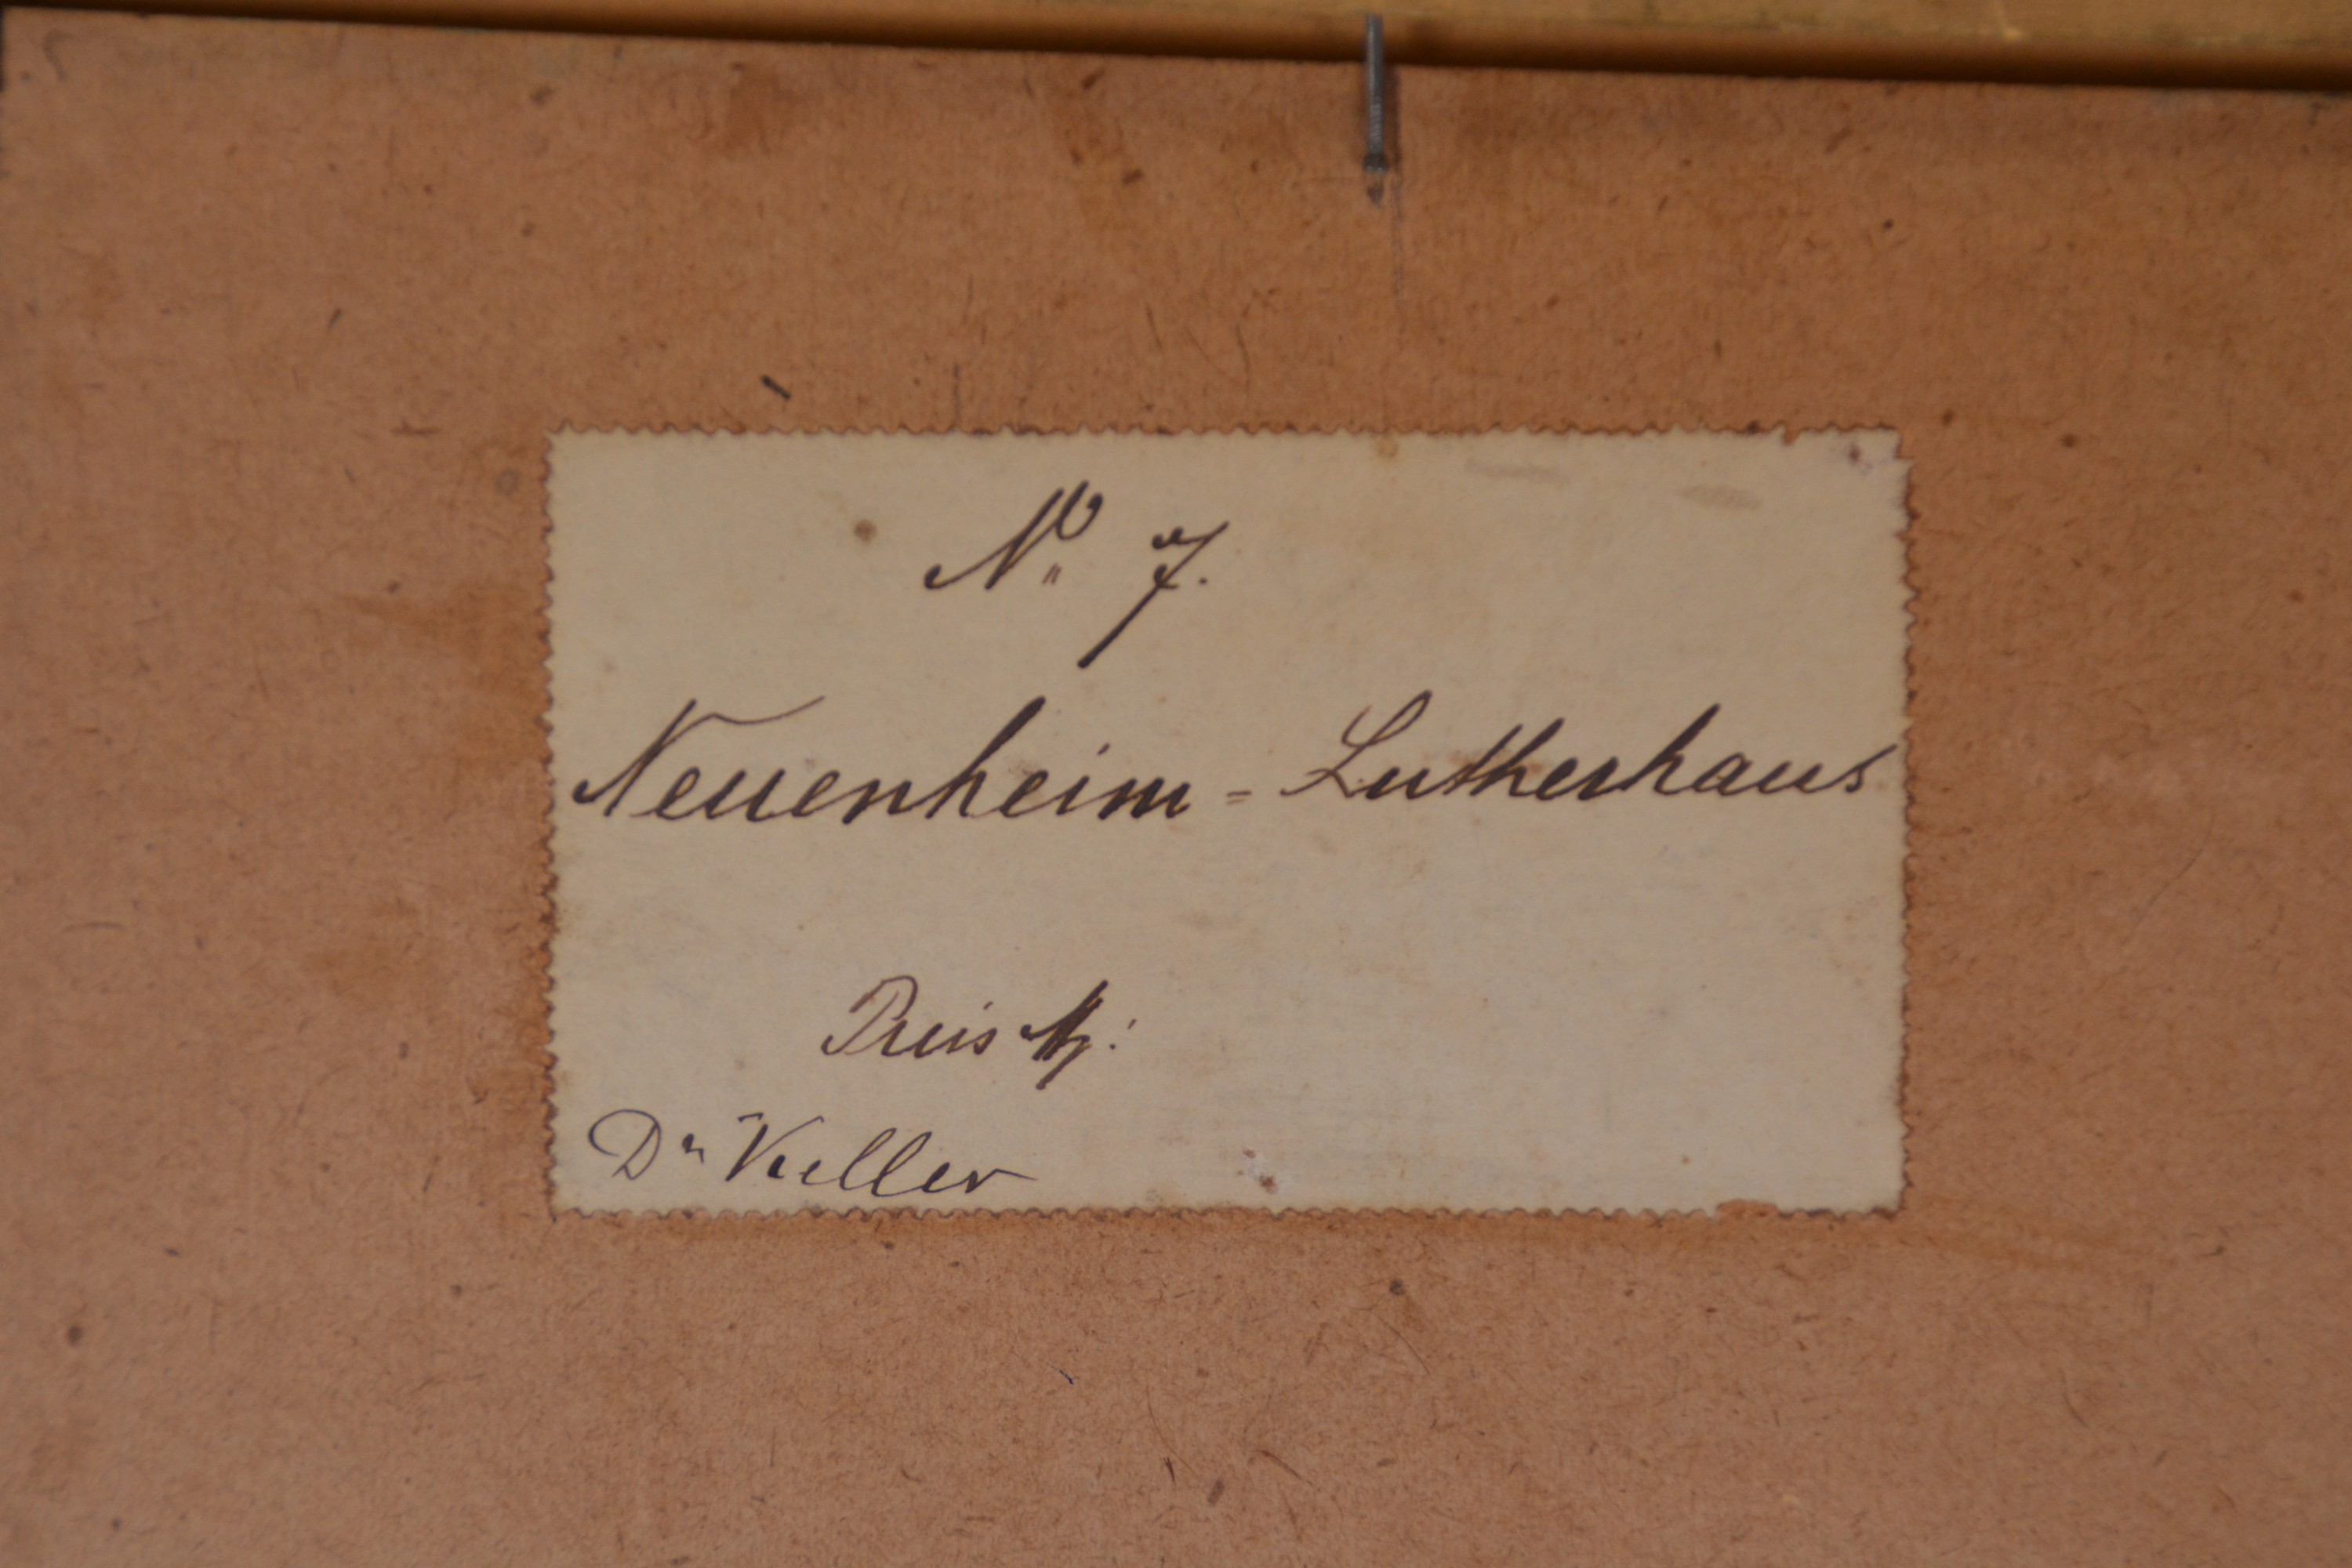 No 7.
Neuenheim - Lutherhaus
Preis M:
Dr Keller